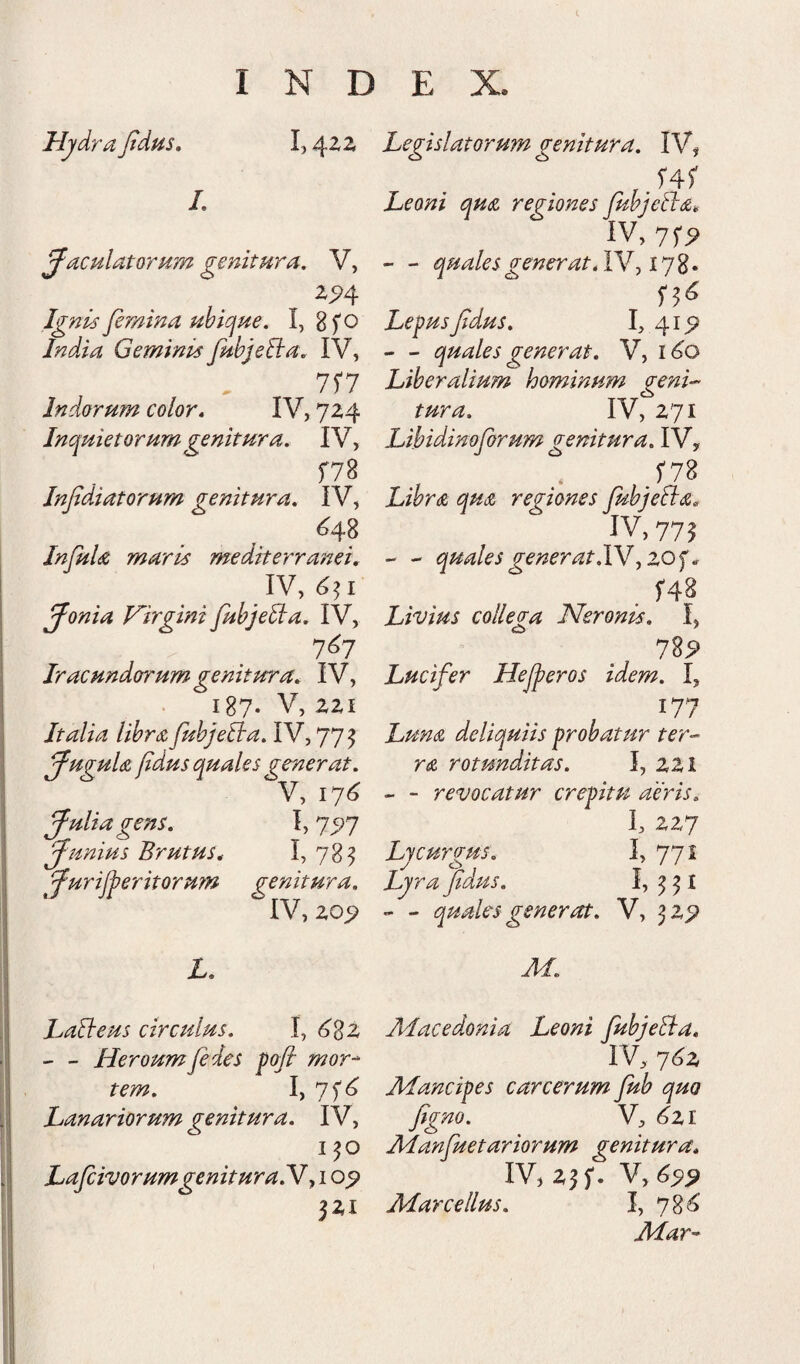 INDEX.
Hydra ſidus. I, 422
I.
Jaculatorum genitura. V,
294
Ignis ſemina ubique. I, 850
India Geminis ſubjecta. IV,
757
Indorum color. IV, 724
Inquietorum genitura. IV,
578
Inſidiatorum genitura. IV,
648
Inſulæ maris mediterranei.
IV, 631
Jonia Virgini ſubjecta. IV,
767
Iracundorum genitura. IV,
187. V, 221
Italia libræ ſubjecta. IV, 773
Jugulæ ſidus quales generat.
V, 176
Julia gens. I, 797
Junius Brutus. I, 783
Juriſperitorum genitura.
IV, 209
L.
Lacteus circulus. I, 682
- - Heroum ſedes poſt mor-
tem. I, 756
Lanariorum genitura. IV,
130
Laſcivorum genitura. V, 109
321
Legislatorum genitura. IV,
545
Leoni quæ regiones ſubjectæ.
IV, 759
- - quales generat. IV, 178.
536
Lepus ſidus. I, 419
- - quales generat. V, 160
Liberalium hominum geni-
tura. IV, 271
Libidinoſorum genitura. IV,
578
Libræ quæ regiones ſubjectæ.
IV, 773
- - quales generat. IV, 205.
548
Livius collega Neronis. I,
789
Lucifer Heſperos idem. I,
177
Lunæ deliquiis probatur ter-
ræ rotunditas. I, 221
- - revocatur crepitu aëris.
I, 227
Lycurgus. I, 771
Lyra ſidus. I, 331
- - quales generat. V, 329
M.
Macedonia Leoni ſubjecta.
IV, 762
Mancipes carcerum ſub quo
ſigno. V, 621
Manſuetariorum genitura.
IV, 235. V, 699
Marcellus. I, 786
Mar-